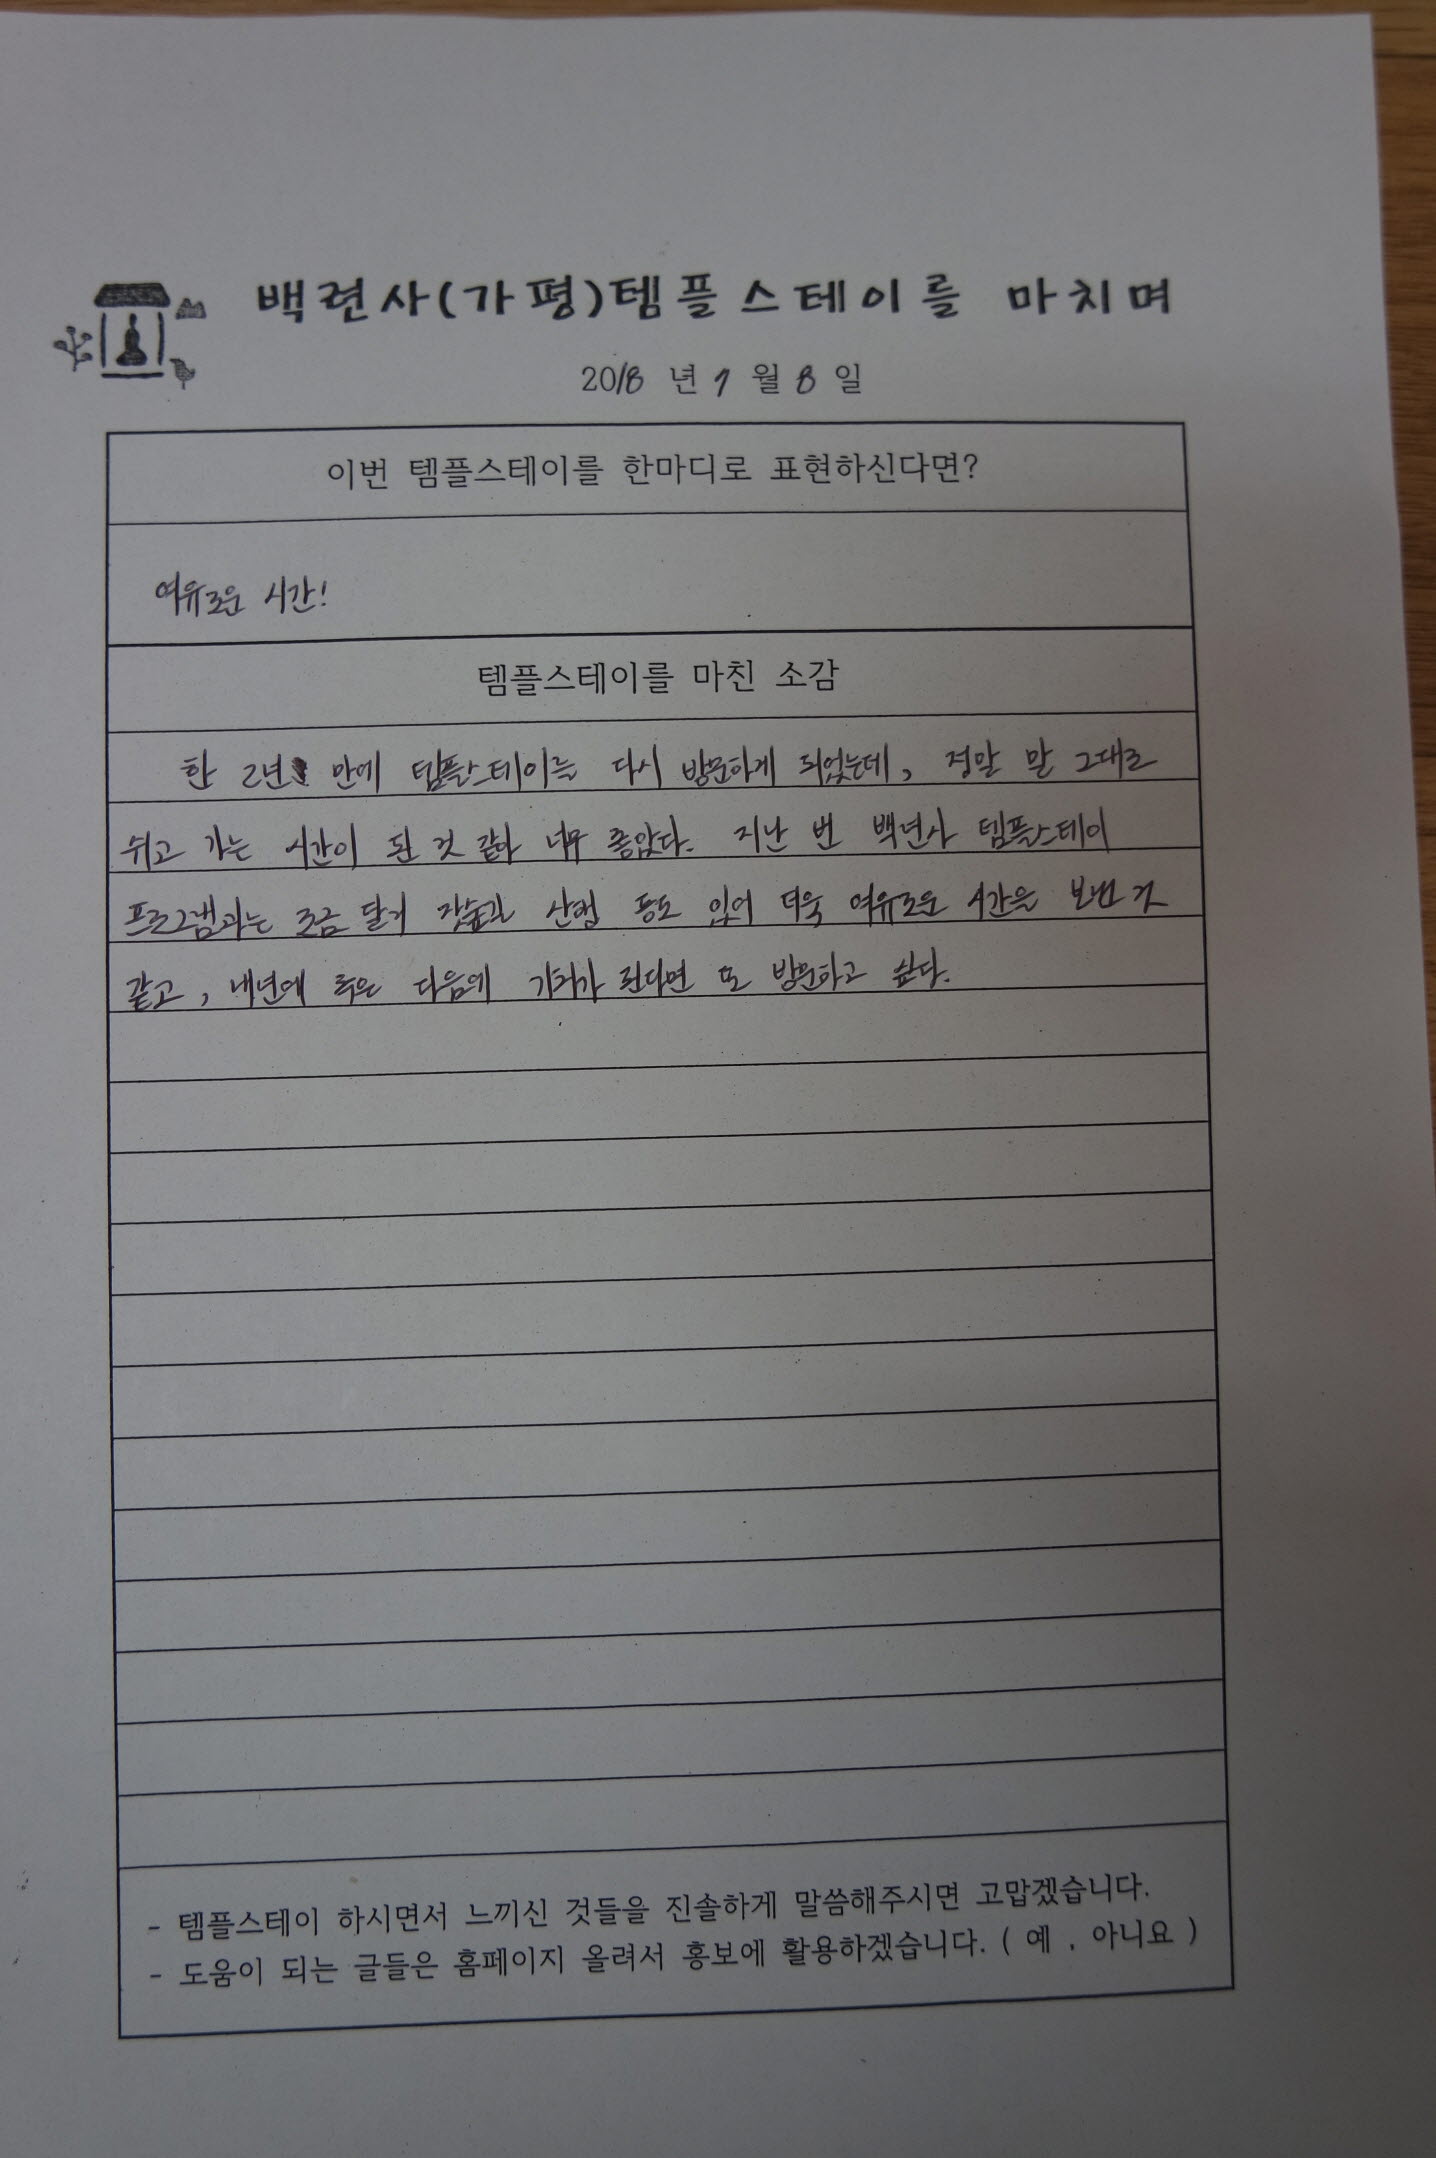 백련사(가평)템플스테이를 마치며
2018 년 7 월 8 일
이번 템플스테이를 한마디로 표현하신다면?
여유로운 시간!
템플스테이를 마친 소감
한 2년 만에 템플스테이를 다시 방문하게 되었는데, 정말 말 그대로
쉬고 가는 시간이 된 것 같아 너무 좋았다. 지난 번 백련사 템플스테이
프로그램과는 조금 달리 잣숲길 산행 등도 있어 더욱 여유로운 시간을 보낸 것
같고, 내년에 혹은 다음에 기회가 된다면 또 방문하고 싶다.
- 템플스테이 하시면서 느끼신 것들을 진솔하게 말씀해주시면 고맙겠습니다.
- 도움이 되는 글들은 홈페이지 올려서 홍보에 활용하겠습니다. ( 예 , 아니요 )